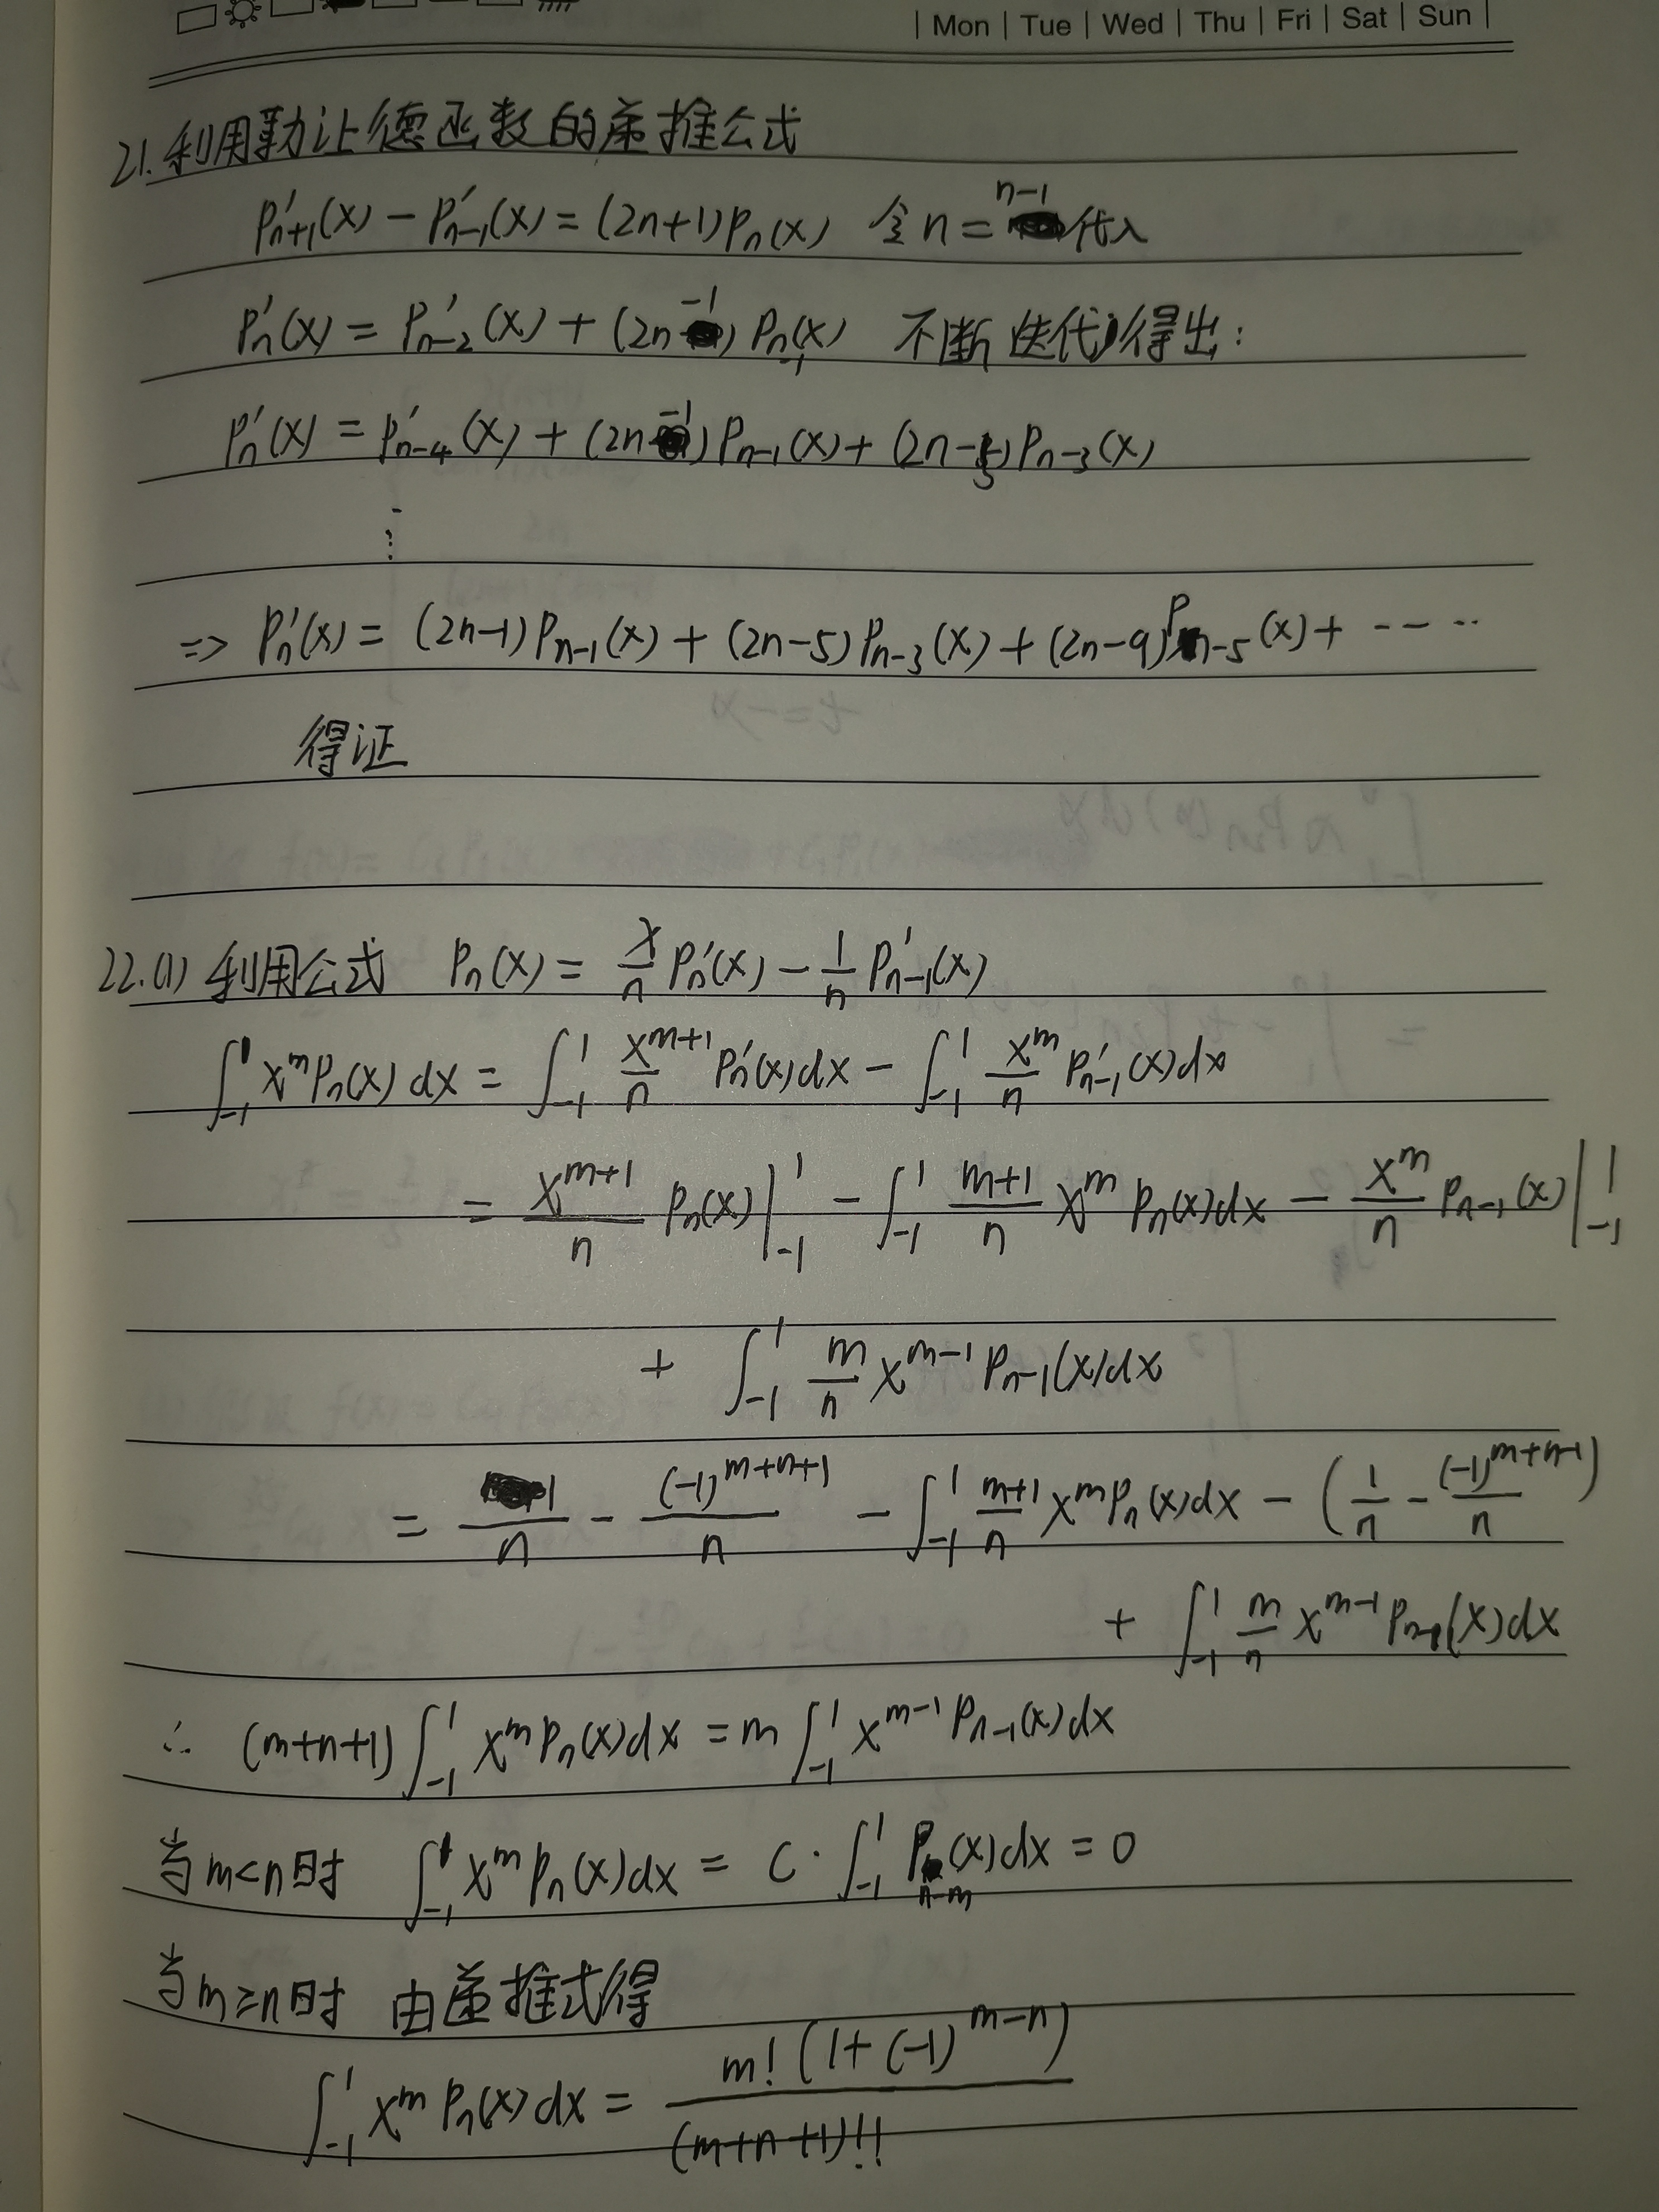 | Mon | Tue | Wed | Thu | Fri | Sat | Sun |
21.利用勒让德函数的递推公式
P'ₙ₊₁(x) − P'ₙ₋₁(x) = (2n+1)Pₙ(x) 令n = n−1代入
P'ₙ(x) = P'ₙ₋₂(x) + (2n−1)Pₙ₋₁(x) 不断迭代得出:
P'ₙ(x) = P'ₙ₋₄(x) + (2n−1)Pₙ₋₁(x) + (2n−5)Pₙ₋₃(x)
⋮
⇒ P'ₙ(x) = (2n−1)Pₙ₋₁(x) + (2n−5)Pₙ₋₃(x) + (2n−9)Pₙ₋₅(x) + ⋯⋯
得证
22.(1) 利用公式 Pₙ(x) = x/n P'ₙ(x) − 1/n P'ₙ₋₁(x)
∫_{-1}^{1} x^m Pₙ(x) dx = ∫_{-1}^{1} x^{m+1}/n P'ₙ(x)dx − ∫_{-1}^{1} x^m/n P'ₙ₋₁(x)dx
= x^{m+1}/n Pₙ(x)|_{-1}^{1} − ∫_{-1}^{1} (m+1)/n x^m Pₙ(x)dx − x^m/n Pₙ₋₁(x)|_{-1}^{1}
+ ∫_{-1}^{1} m/n x^{m−1} Pₙ₋₁(x)dx
= 1/n − (−1)^{m+n+1}/n − ∫_{-1}^{1} (m+1)/n x^m Pₙ(x)dx − (1/n − (−1)^{m+n−1}/n)
+ ∫_{-1}^{1} m/n x^{m−1} Pₙ₋₁(x)dx
∴ (m+n+1)∫_{-1}^{1} x^m Pₙ(x)dx = m∫_{-1}^{1} x^{m−1} Pₙ₋₁(x)dx
当m<n时 ∫_{-1}^{1} x^m Pₙ(x)dx = C·∫_{-1}^{1} P_{n−m}(x)dx = 0
当m≥n时 由递推式得
∫_{-1}^{1} x^m Pₙ(x)dx = m!(1+(−1)^{m−n})/(m+n+1)!!